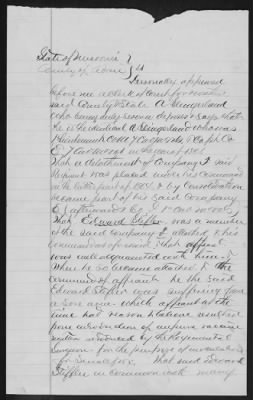 State of Missouri }
County of Boone } ss
Personally appeared
before me a clerk of court for
said County & State A Slingerland
who being duly sworn deposes & says that
he is the identical A Slingerland who was
Lieutenant Comdg Company & Capt Co
E 7 in the year of 1864
that a detachment of Company I said
Regiment was placed under his command
in the latter part of 1864 & by Consolidation
became part of his said Company
E
that Edward Steffler was a member
of the said Company I attached to his
command as aforesaid that affiant
was well acquainted with him &
when he so became attached to the
command of affiant he the said
Edward Steffler was suffering from
a sore arm which affiant at the
time had reason to believe resulted
from introduction of impure vaccine
matter introduced by the Regimental
Surgeon for the purpose of inoculation
for Small pox. that said Edward
Steffler in common with many